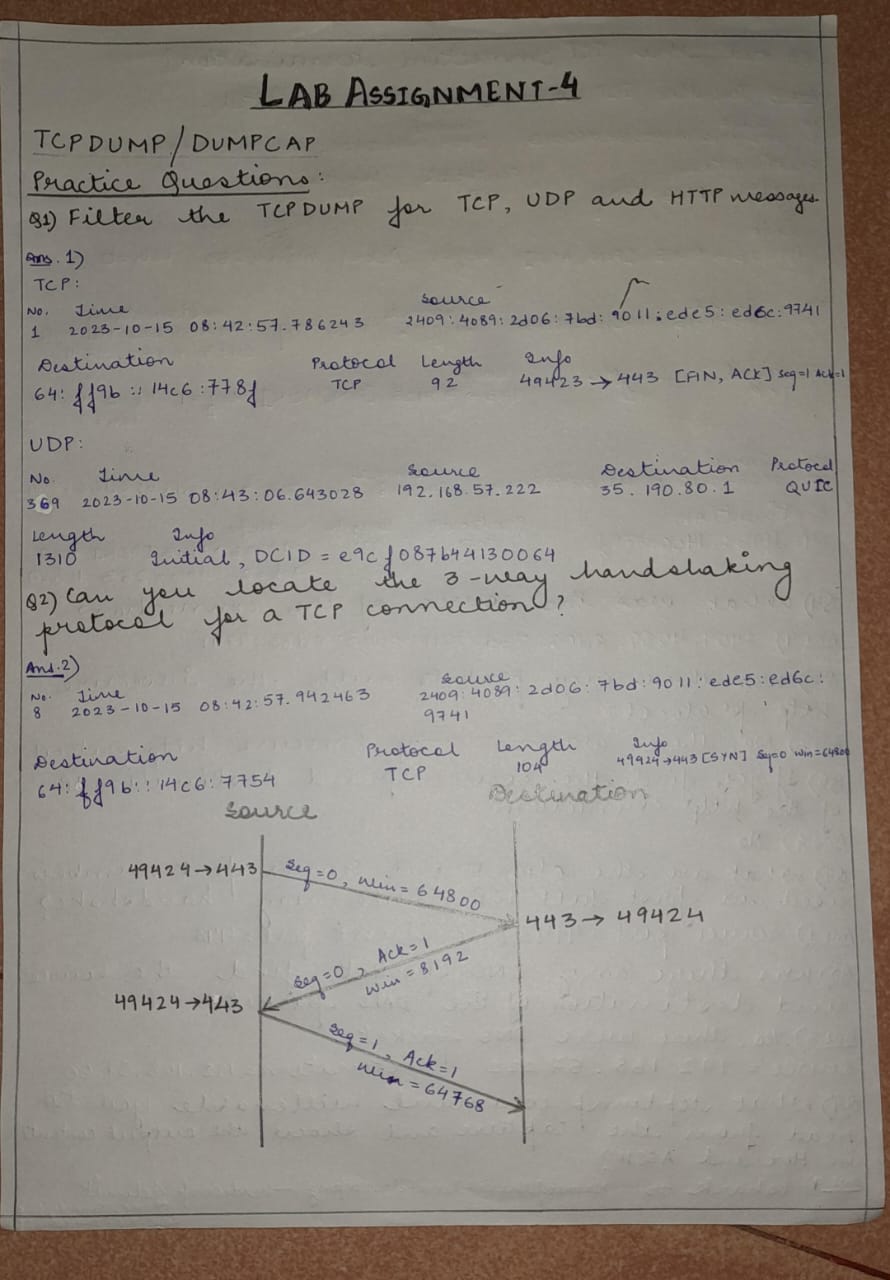 LAB ASSIGNMENT-4
TCPDUMP/DUMPCAP
Practice Questions:
Q1) Filter the TCPDUMP for TCP, UDP and HTTP messages.
Ans. 1)
TCP:
No. Time Source
1 2023-10-15 08:42:57.786243 2409:4089:2d06:7bd:9011:ede5:ed6c:9741
Destination Protocol Length Info
64:ff9b::14c6:778f TCP 92 49423→443 [FIN, ACK] Seq=1 Ack=1
UDP:
No. Time Source Destination Protocol
369 2023-10-15 08:43:06.643028 192.168.57.222 35.190.80.1 QUIC
Length Info
1310 Initial, DCID = e9cf087b44130064
Q2) Can you locate the 3-way handshaking
protocol for a TCP connection?
Ans.2)
No. Time Source
8 2023-10-15 08:42:57.942463 2409:4089:2d06:7bd:9011:ede5:ed6c:
9741
Destination Protocol Length Info
64:ff9b::14c6:7754 TCP 104 49424→443 [SYN] Seq=0 Win=64800
Source Destination
49424→443 Seq=0, Win=64800
443→49424
Seq=0, Ack=1
Win=8192
49424→443
Seq=1, Ack=1
Win=64768